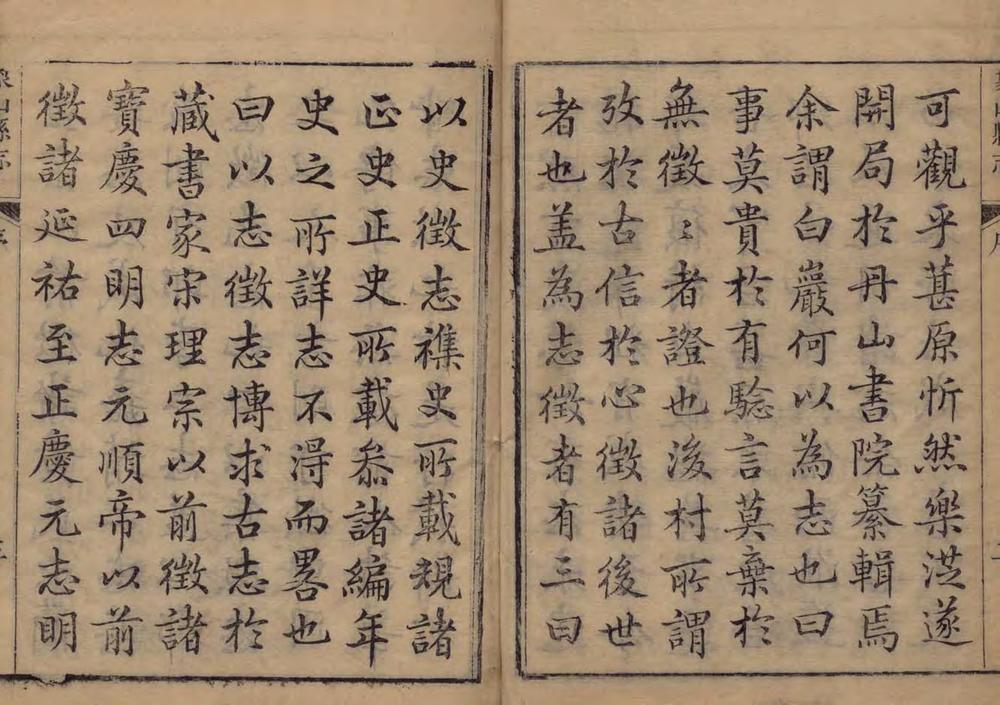 可觀乎葚原忻然樂洪遂
開局於丹山書院纂輯焉
余謂白巖何以為志也曰
事莫貴於有驗言莫棄於
無徵〻者證也後村所謂
攷於古信於心徵諸後世
者也盖為志徵者有三曰
以史徵志襍史所載規諸
正史正史所載叅諸編年
史之所詳志不淂而畧也
曰以志徵志博求古志於
藏書家宋理宗以前徵諸
寶慶四明志元順帝以前
徵諸延祐至正慶元志明
象山縣志
序